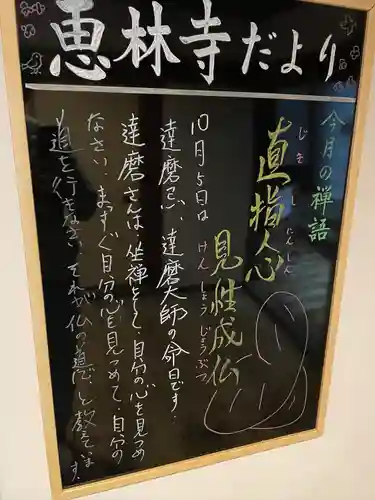 恵林寺だより
今月の禅語
直指人心
じきしにんしん
見性成仏
けんしょうじょうぶつ
10月5日は
達磨忌、達磨大師の命日です。
達磨さんは、坐禅をして、自分の心を見つめ
なさい。まっすぐ自分の心を見つめて、自分の
道を行きなさい、それが仏の道だ、と教えています。